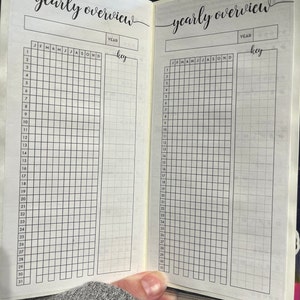 yearly overview
YEAR
key
J F M A M J J A S O N D
1
2
3
4
5
6
7
8
9
10
11
12
13
14
15
16
17
18
19
20
21
22
23
24
25
26
27
28
29
30
31
yearly overview
YEAR
key
J F M A M J J A S O N D
1
2
3
4
5
6
7
8
9
10
11
12
13
14
15
16
17
18
19
20
21
22
23
24
25
26
27
28
29
30
31